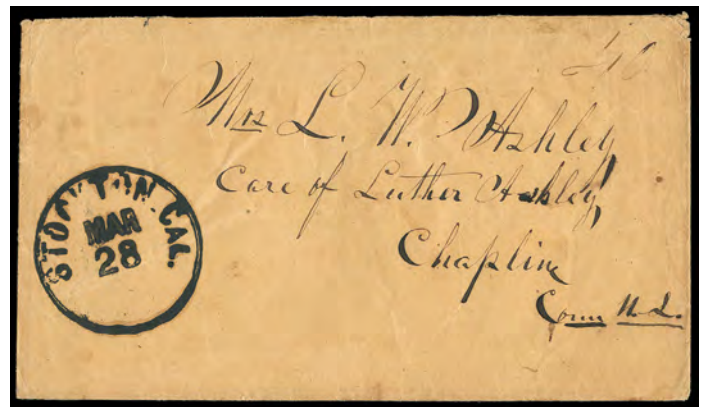 40
Mrs L. W. Ashley
Care of Luther Ashley
Chaplin
Conn U.S.
STOCKTON CAL.
MAR
28